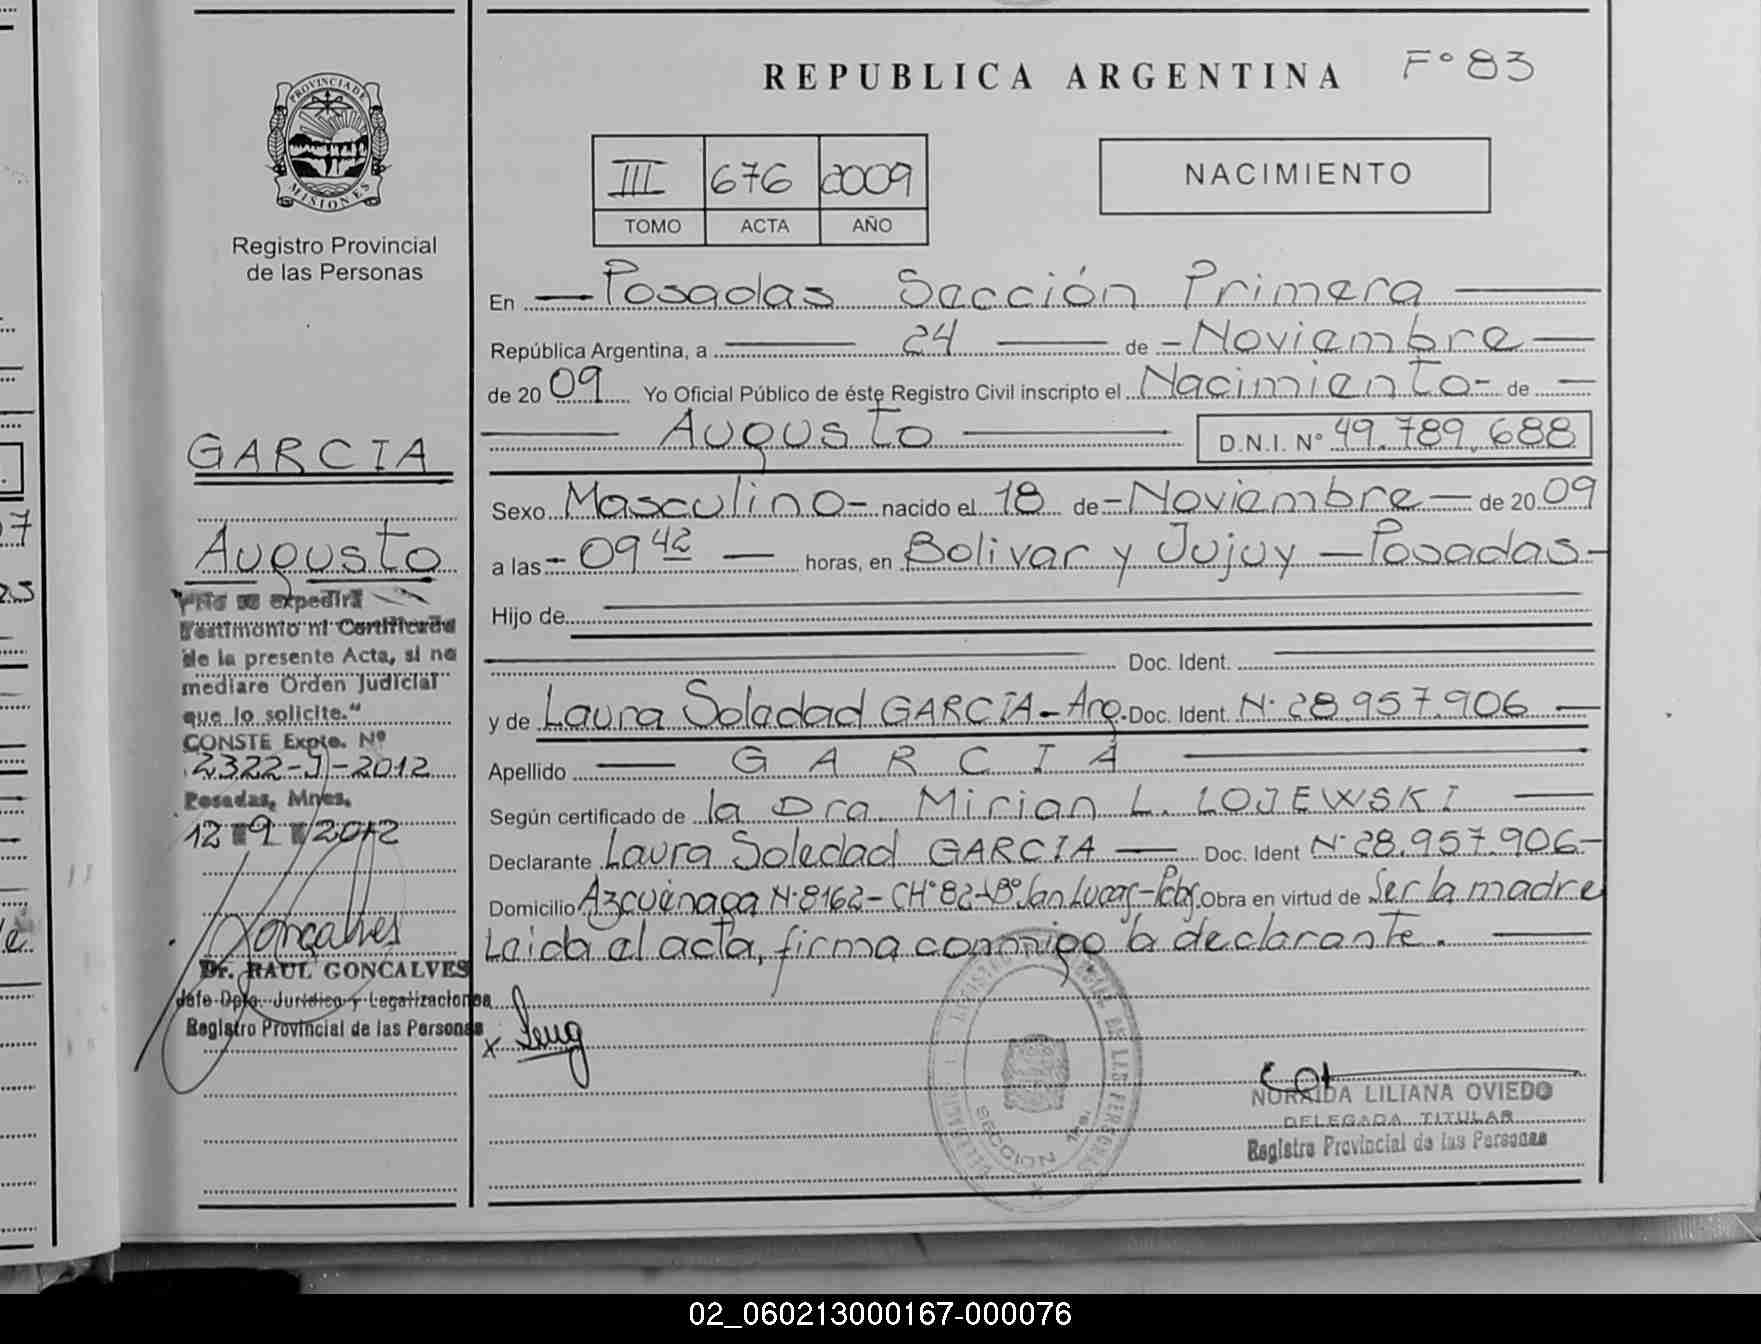 REPUBLICA ARGENTINA F° 83
PROVINCIA DE
MISIONES
Registro Provincial
de las Personas
III 676 2009
TOMO ACTA AÑO
NACIMIENTO
En Posadas Sección Primera
República Argentina, a 24 de Noviembre
de 20 09 Yo Oficial Público de éste Registro Civil inscripto el Nacimiento de
Augusto D.N.I. N° 49.789.688
Sexo Masculino nacido el 18 de Noviembre de 20 09
a las 09 42 horas, en Bolivar y Jujuy - Posadas
Hijo de
Doc. Ident.
y de Laura Soledad GARCIA - Arg. Doc. Ident. N° 28.957.906
Apellido G A R C I A
Según certificado de la Dra. Mirian L. LOJEWSKI
Declarante Laura Soledad GARCIA Doc. Ident N° 28.957.906
Domicilio Azcuénaga N° 8162 - CH° 82 - B° San Lucas - Pdas Obra en virtud de Ser la madre
Leida el acta, firma conmigo la declarante.
x
NORAIDA LILIANA OVIEDO
DELEGADA TITULAR
Registro Provincial de las Personas
GARCIA
Augusto
"No se expedirá
Testimonio ni Certificado
de la presente Acta, si no
mediare Orden Judicial
que lo solicite."
CONSTE Expte. Nº
2322-J-2012
Posadas, Mnes,
12 9 2012
Goncalves
Dr. RAUL GONCALVES
Jefe Dpto. Jurídico y Legalizaciones
Registro Provincial de las Personas
02_060213000167-000076